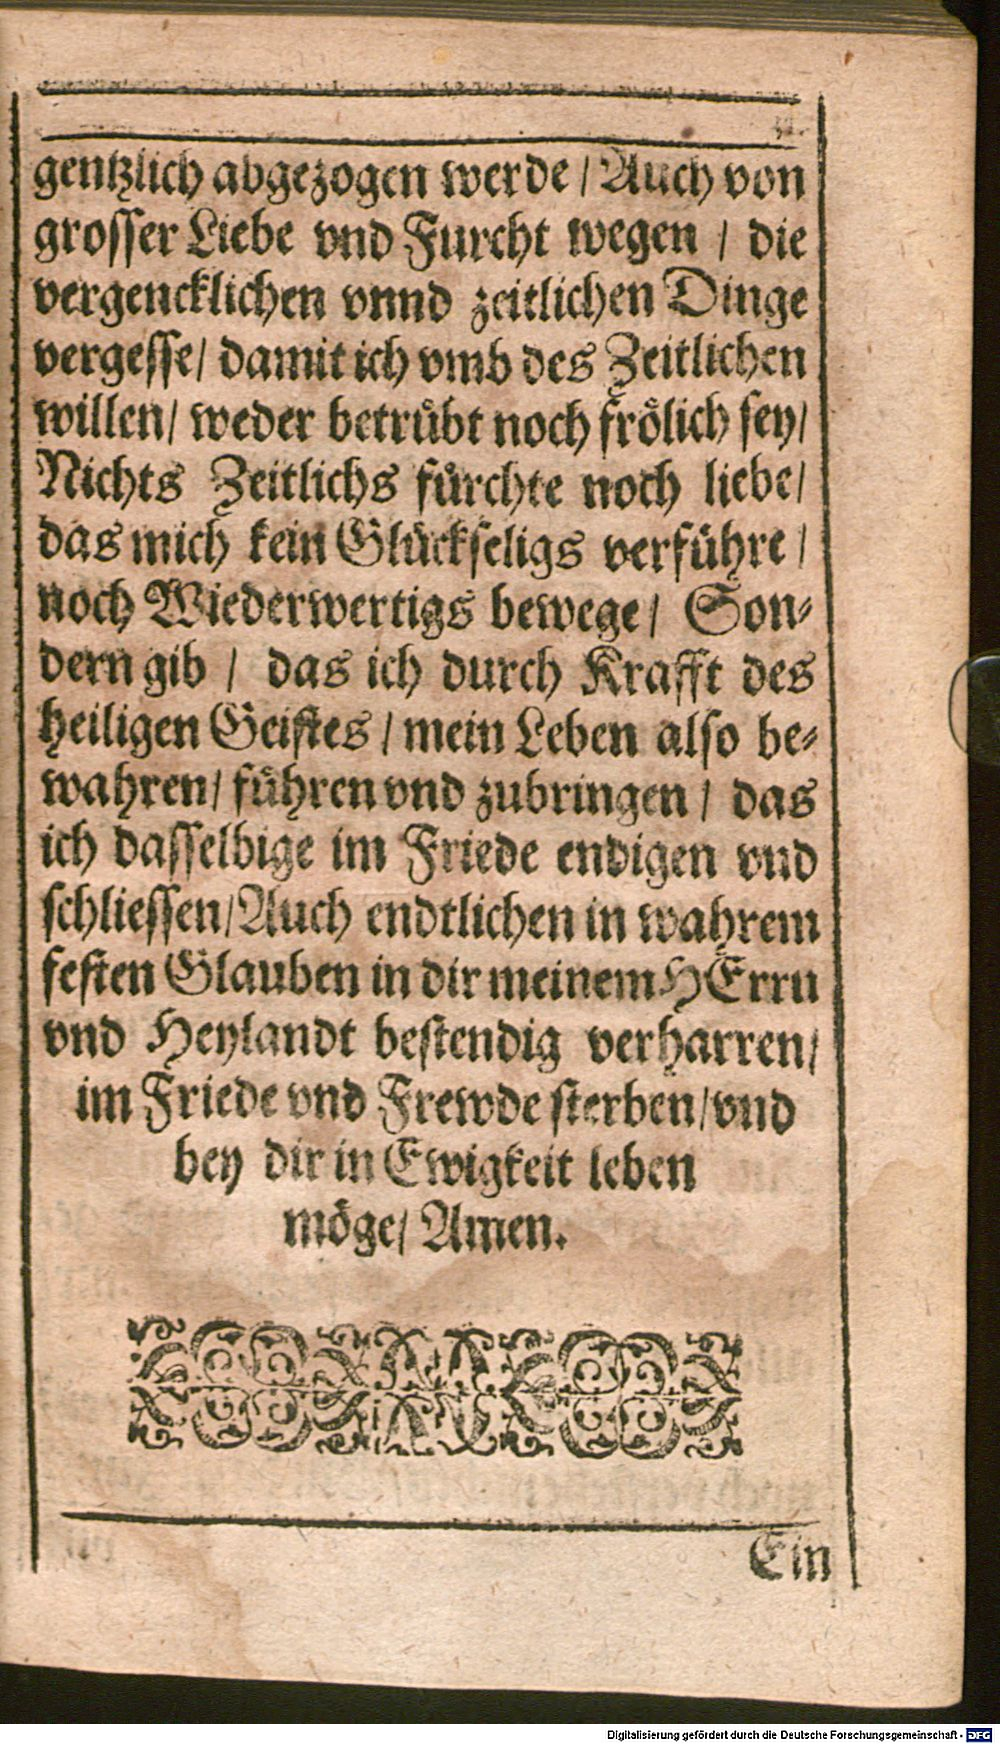 gentzlich abgezogen werde / Auch von
grosser Liebe vnd Furcht wegen / die
vergencklichen vnnd zeitlichen Dinge
vergesse / damit ich vmb des Zeitlichen
willen / weder betruͤbt noch froͤlich sey /
Nichts Zeitlichs fuͤrchte noch liebe /
das mich kein Gluͤckseligs verfuͤhre /
noch Wiederwertigs bewege / Son-
dern gib / das ich durch Krafft des
heiligen Geistes / mein Leben also be-
wahren / fuͤhren vnd zubringen / das
ich dasselbige im Friede endigen vnd
schliessen / Auch endtlichen in wahrem
festen Glauben in dir meinem HErrn
vnd Heylandt bestendig verharren /
im Friede vnd Frewde sterben / vnd
bey dir in Ewigkeit leben
moͤge / Amen.
Ein
Digitalisierung gefördert durch die Deutsche Forschungsgemeinschaft - DFG